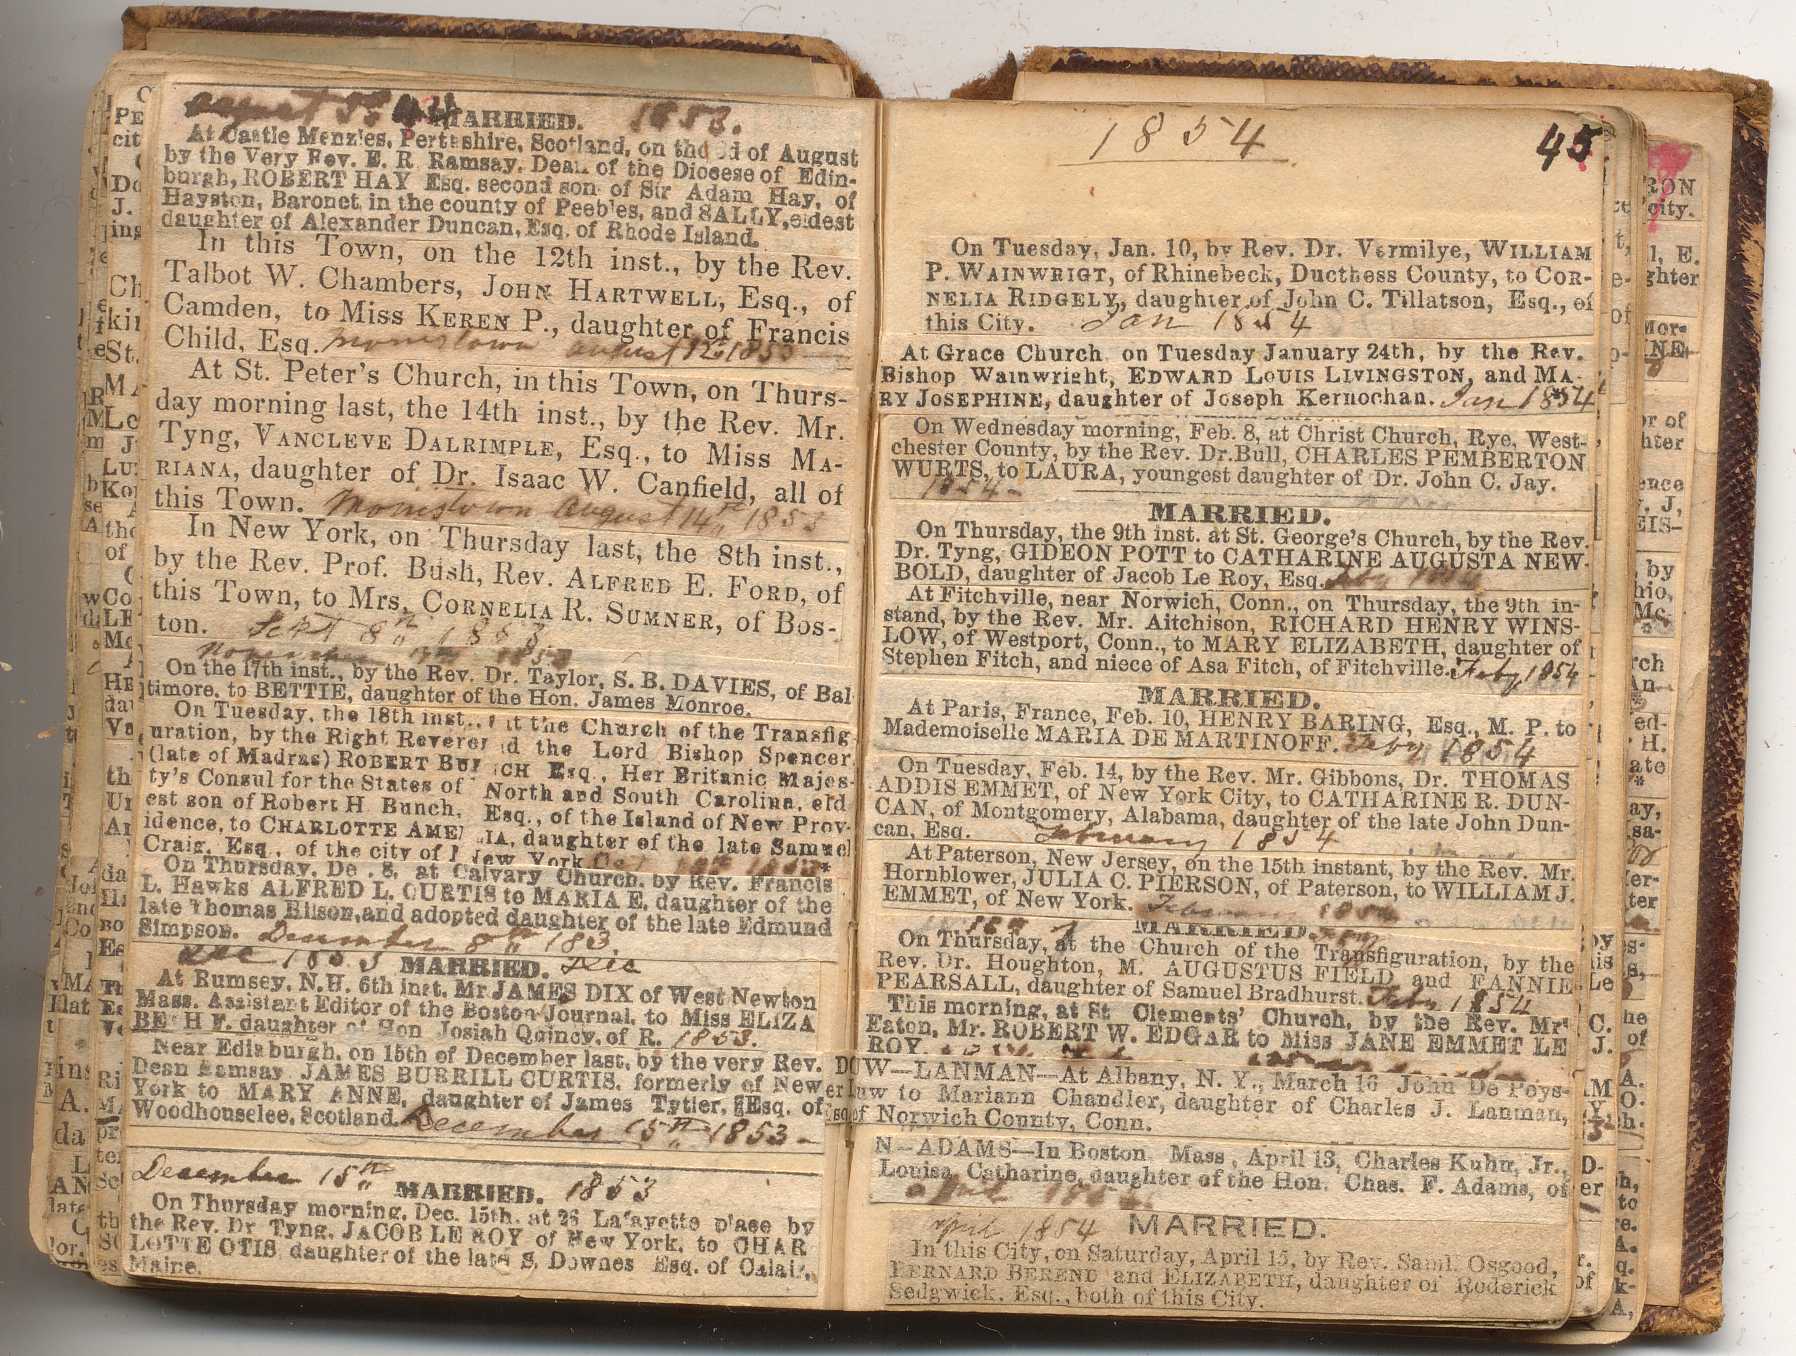 1853.
MARRIED.
At Castle Menzies, Perthshire, Scotland, on the 3d of August
by the Very Rev. E. R. Ramsay, Dean of the Diocese of Edin-
burgh, ROBERT HAY Esq. second son of Sir Adam Hay, of
Hayston, Baronet, in the county of Peebles, and SALLY, eldest
daughter of Alexander Duncan, Esq. of Rhode Island.
In this Town, on the 12th inst., by the Rev.
Talbot W. Chambers, JOHN HARTWELL, Esq., of
Camden, to Miss KEREN P., daughter of Francis
Child, Esq. Morristown august 12th 1853
At St. Peter's Church, in this Town, on Thurs-
day morning last, the 14th inst., by the Rev. Mr.
Tyng, VANCLEVE DALRIMPLE, Esq., to Miss MA-
RIANA, daughter of Dr. Isaac W. Canfield, all of
this Town. Morristown August 14th 1853
In New York, on Thursday last, the 8th inst.,
by the Rev. Prof. Bush, Rev. ALFRED E. FORD, of
this Town, to Mrs. CORNELIA R. SUMNER, of Bos-
ton. Sept 8th 1853
November 17th 1853
On the 17th inst., by the Rev. Dr. Taylor, S. B. DAVIES, of Bal
timore, to BETTIE, daughter of the Hon. James Monroe.
On Tuesday, the 18th inst., at the Church of the Transfig-
uration, by the Right Reverend the Lord Bishop Spencer
(late of Madras) ROBERT BUNCH Esq., Her Britanic Majes-
ty's Consul for the States of North and South Carolina, eld
est son of Robert H. Bunch, Esq., of the Island of New Prov-
idence, to CHARLOTTE AMELIA, daughter of the late Samuel
Craig, Esq., of the city of New York Oct 18th 1853*
On Thursday, Dec. 8, at Calvary Church, by Rev. Francis
L. Hawks ALFRED L. CURTIS to MARIA E. daughter of the
late Thomas Bilson, and adopted daughter of the late Edmund
Simpson. December 8th 1853.
Dec 1853 MARRIED. Dec
At Rumsey, N.H. 6th inst. Mr JAMES DIX of West Newton
Mass. Assistant Editor of the Boston Journal, to Miss ELIZA
BETH F. daughter of Hon Josiah Quincy, of R. 1853.
Near Edinburgh, on 15th of December last, by the very Rev.
Dean Ramsay JAMES BURRILL CURTIS, formerly of New
York to MARY ANNE, daughter of James Tytler, Esq. of
Woodhouselee, Scotland. December 15th 1853-
December 15th MARRIED. 1853
On Thursday morning, Dec. 15th, at 26 Lafayette place by
the Rev. Dr Tyng, JACOB LE ROY of New York, to CHAR
LOTTE OTIS, daughter of the late S. Downes Esq. of Calais,
Maine.
1854
45
On Tuesday, Jan. 10, by Rev. Dr. Vermilye, WILLIAM
P. WAINWRIGT, of Rhinebeck, Ducthess County, to COR-
NELIA RIDGELY, daughter of John C. Tillatson, Esq., of
this City. Jan 1854
At Grace Church, on Tuesday January 24th, by the Rev.
Bishop Wainwright, EDWARD LOUIS LIVINGSTON, and MA-
RY JOSEPHINE, daughter of Joseph Kernochan. Jan 1854
On Wednesday morning, Feb. 8, at Christ Church, Rye, West-
chester County, by the Rev. Dr. Bull, CHARLES PEMBERTON
WURTS, to LAURA, youngest daughter of Dr. John C. Jay.
1854-
MARRIED.
On Thursday, the 9th inst. at St. George's Church, by the Rev.
Dr. Tyng, GIDEON POTT to CATHARINE AUGUSTA NEW-
BOLD, daughter of Jacob Le Roy, Esq. Feby 1854
At Fitchville, near Norwich, Conn., on Thursday, the 9th in-
stand, by the Rev. Mr. Aitchison, RICHARD HENRY WINS-
LOW, of Westport, Conn., to MARY ELIZABETH, daughter of
Stephen Fitch, and niece of Asa Fitch, of Fitchville. Feby 1854
MARRIED.
At Paris, France, Feb. 10, HENRY BARING, Esq., M. P. to
Mademoiselle MARIA DE MARTINOFF. Feby 1854
On Tuesday, Feb. 14, by the Rev. Mr. Gibbons, Dr. THOMAS
ADDIS EMMET, of New York City, to CATHARINE R. DUN-
CAN, of Montgomery, Alabama, daughter of the late John Dun-
can, Esq. February 1854
At Paterson, New Jersey, on the 15th instant, by the Rev. Mr.
Hornblower, JULIA C. PIERSON, of Paterson, to WILLIAM J.
EMMET, of New York. February 1854
MARRIED
On Thursday, at the Church of the Transfiguration, by the
Rev. Dr. Houghton, M. AUGUSTUS FIELD and FANNIE
PEARSALL, daughter of Samuel Bradhurst. Feby 1854
This morning, at St Clements' Church, by the Rev. Mr
Eaton, Mr. ROBERT W. EDGAR to Miss JANE EMMET LE
ROY.
DOW—LANMAN—At Albany, N. Y., March 16 John De Poys-
er Luw to Mariann Chandler, daughter of Charles J. Lanman,
Esq of Norwich County, Conn.
N—ADAMS—In Boston, Mass, April 13, Charles Kuhn, Jr.,
Louisa Catharine, daughter of the Hon. Chas. F. Adams, of
April 1854 MARRIED.
In this City, on Saturday, April 15, by Rev. Saml. Osgood,
BERNARD BEREND and ELIZABETH, daughter of Roderick
Sedgwick, Esq., both of this City.